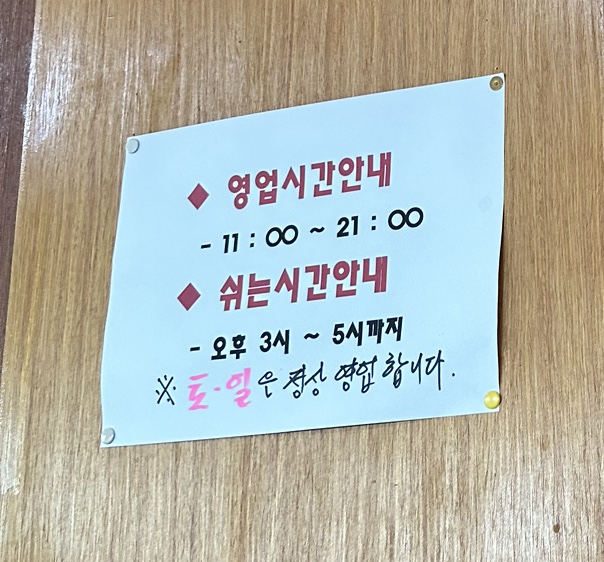 ◆ 영업시간안내
- 11 : 00 ~ 21 : 00
◆ 쉬는시간안내
- 오후 3시 ~ 5시까지
※ 토·일은 정상 영업 합니다.